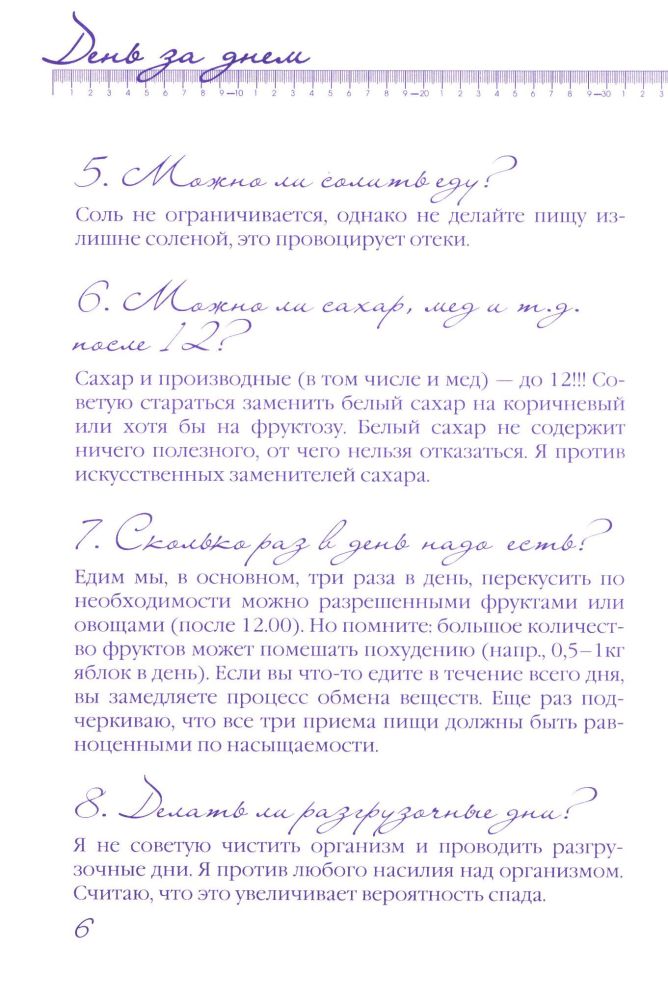 День за днем
1 2 3 4 5 6 7 8 9—10 1 2 3 4 5 6 7 8 9—20 1 2 3 4 5 6 7 8 9—30 1 2 3
5. Можно ли солить еду?
Соль не ограничивается, однако не делайте пищу из-
лишне соленой, это провоцирует отеки.
6. Можно ли сахар, мед и т.д.
после 12?
Сахар и производные (в том числе и мед) — до 12!!! Со-
ветую стараться заменить белый сахар на коричневый
или хотя бы на фруктозу. Белый сахар не содержит
ничего полезного, от чего нельзя отказаться. Я против
искусственных заменителей сахара.
7. Сколько раз в день надо есть?
Едим мы, в основном, три раза в день, перекусить по
необходимости можно разрешенными фруктами или
овощами (после 12.00). Но помните: большое количест-
во фруктов может помешать похудению (напр., 0,5–1кг
яблок в день). Если вы что-то едите в течение всего дня,
вы замедляете процесс обмена веществ. Еще раз под-
черкиваю, что все три приема пищи должны быть рав-
ноценными по насыщаемости.
8. Делать ли разгрузочные дни?
Я не советую чистить организм и проводить разгру-
зочные дни. Я против любого насилия над организмом.
Считаю, что это увеличивает вероятность спада.
6